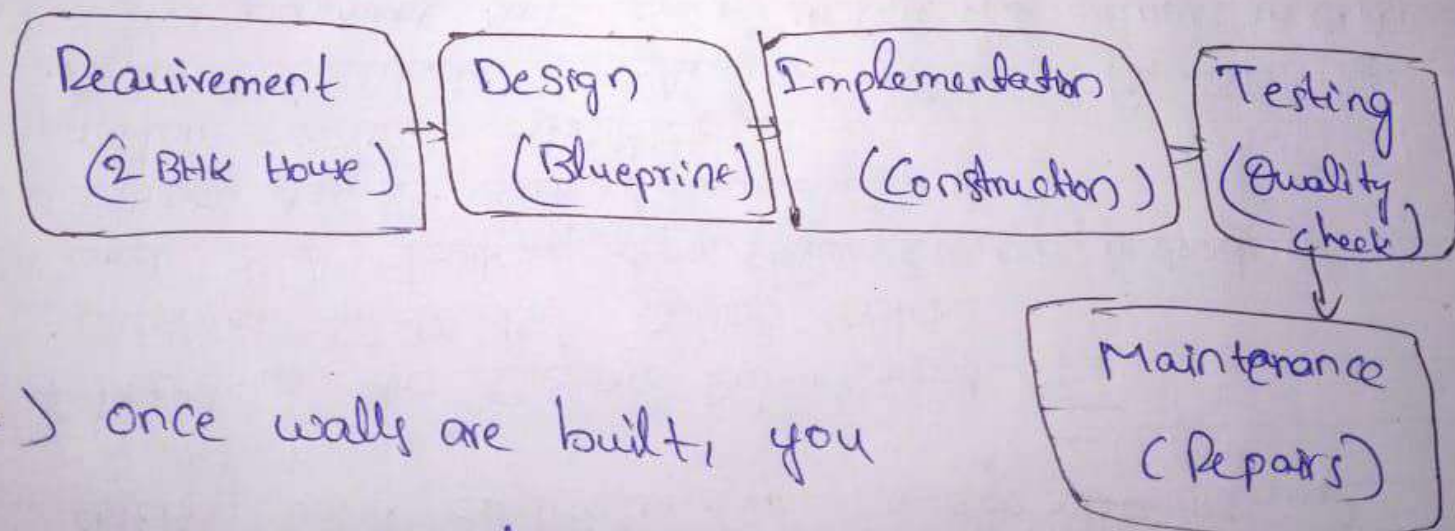 Requirement
(2 BHK House)
Design
(Blueprint)
Implementation
(Construction)
Testing
(Quality
check)
Maintenance
(Repairs)
once walls are built, you